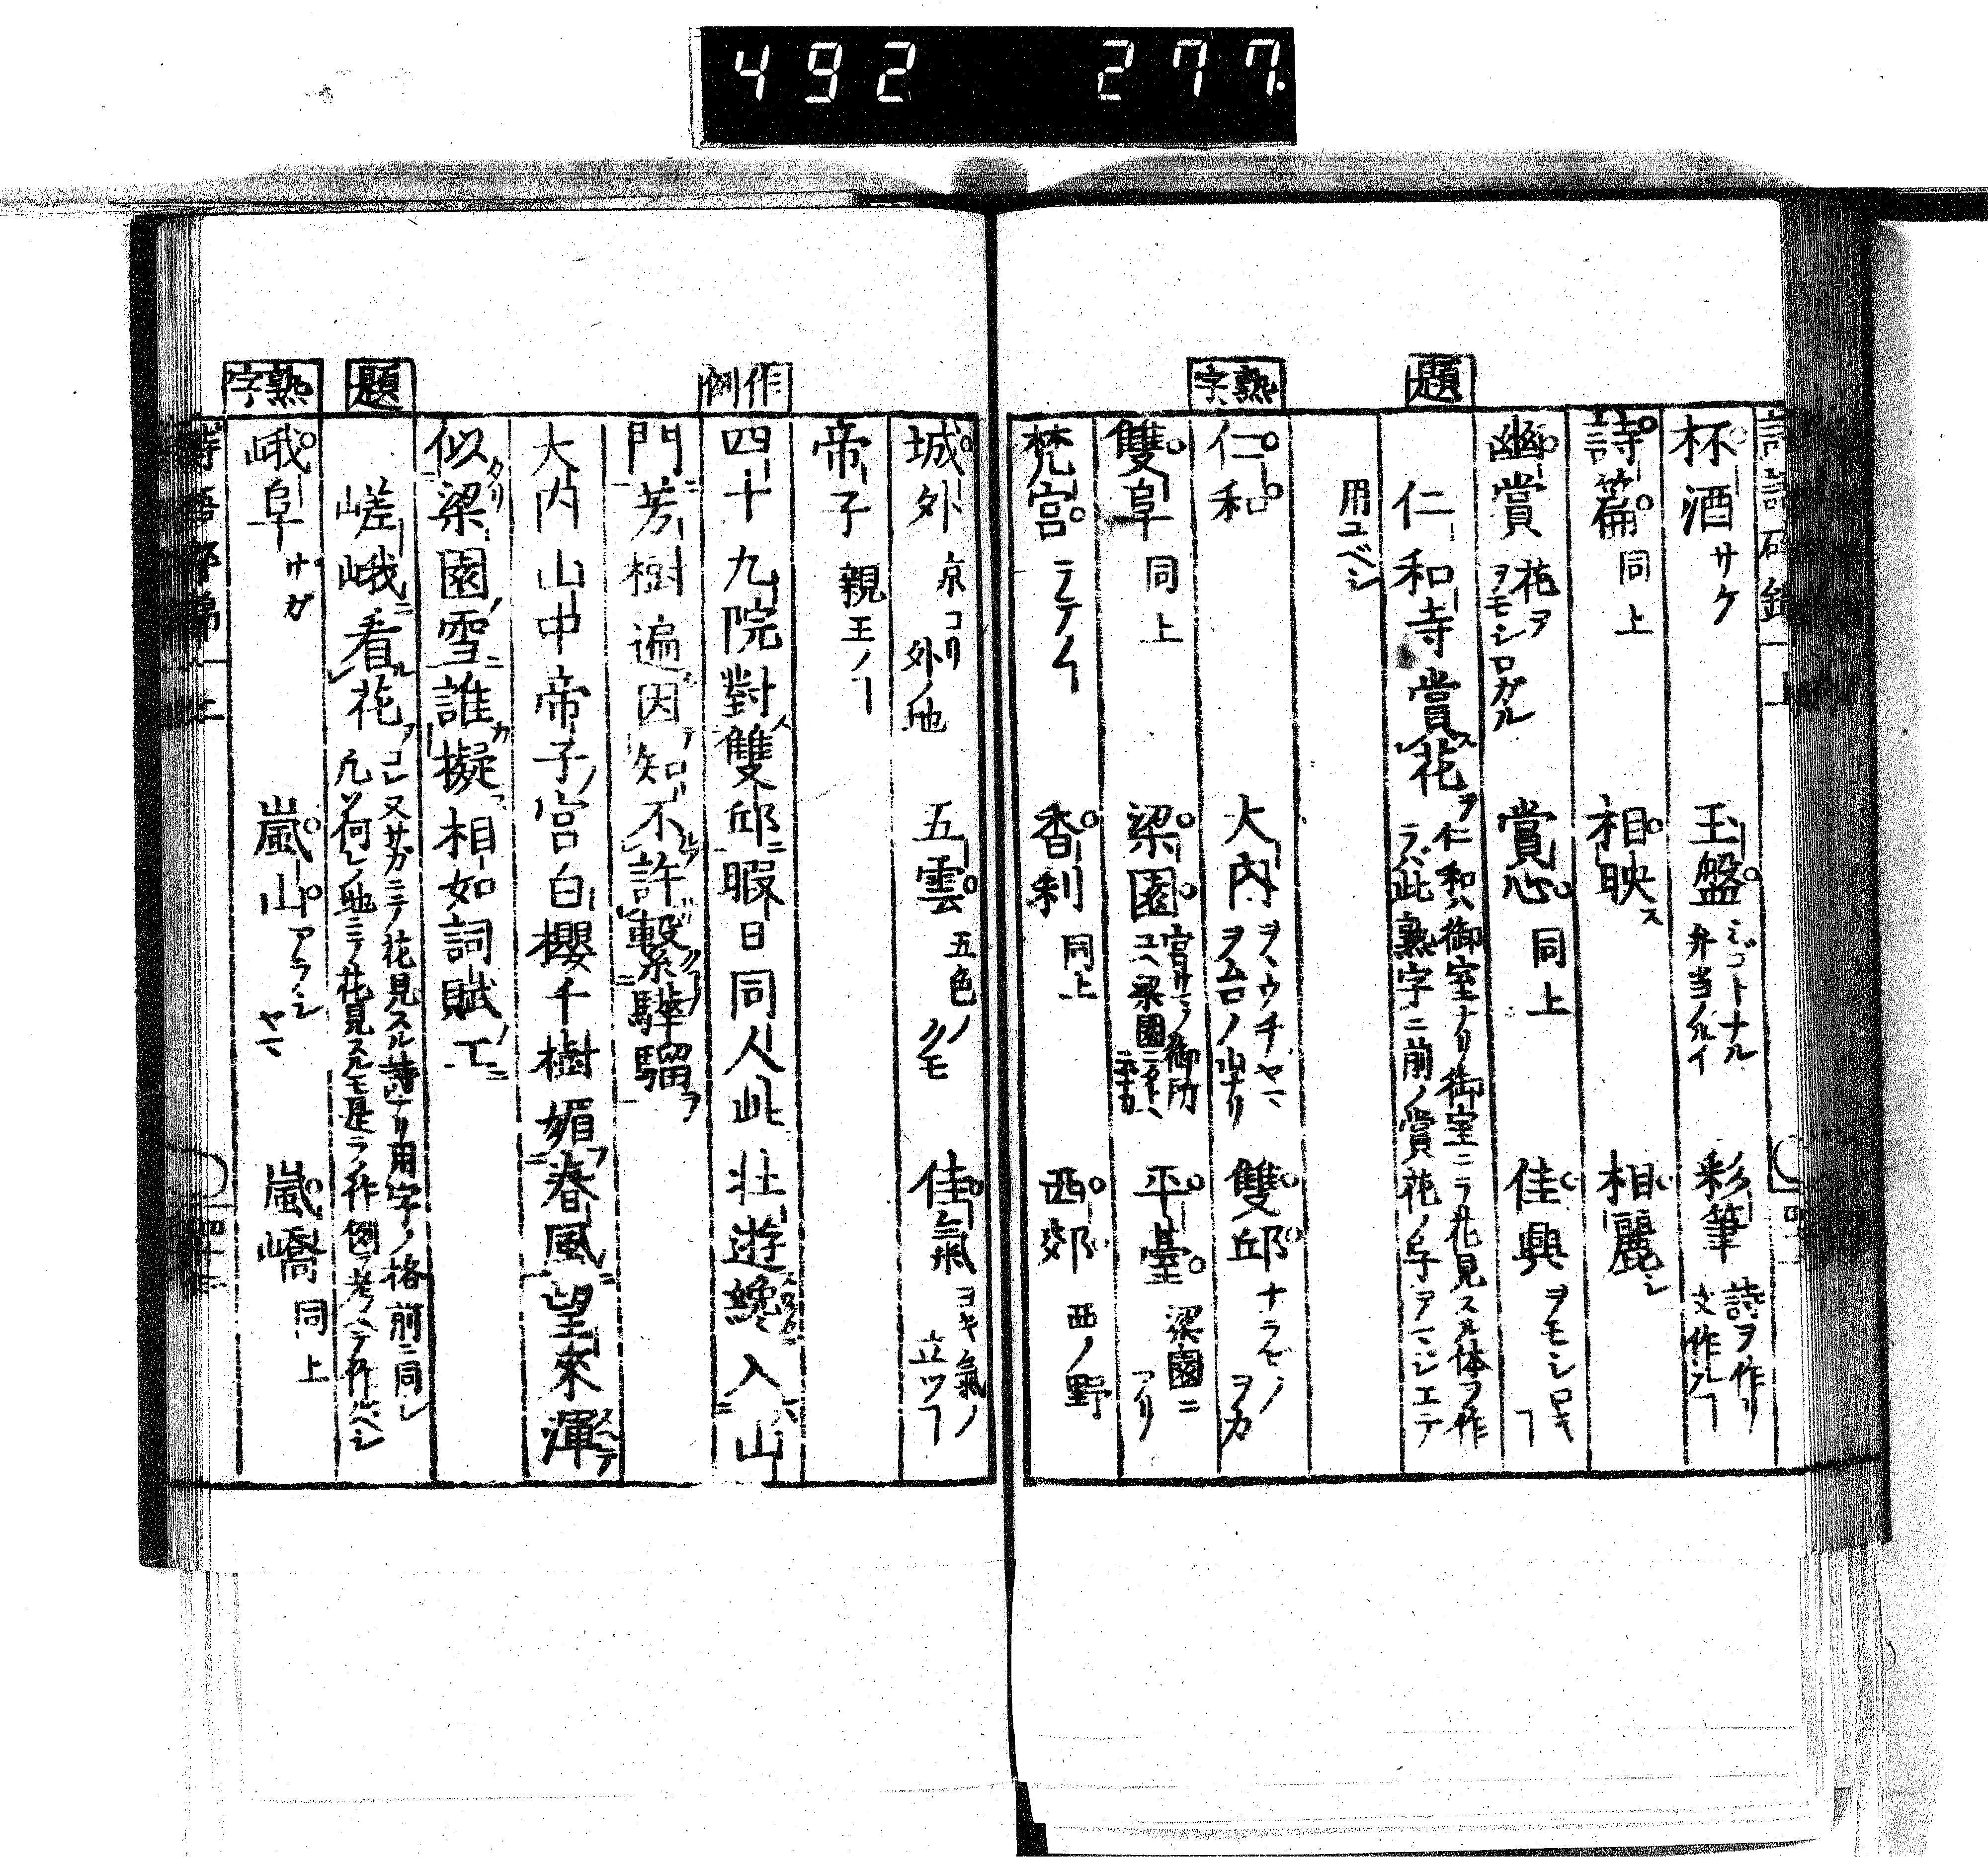 492 277.
杯酒 サケ 玉盤 ミゴトナル 弁当ノルイ 彩筆 詩ヲ作リ 文作ル
詩篇 同上 相映ス 相麗シ
幽賞 花ヲ ヲモシロガル 賞心 同上 佳興 ヲモシロキ
題
仁和寺賞花 仁和ハ御室ナリ御室ニテ花見スル体ヲ作
ラバ此熟字ニ前ノ賞花ノ字ヲマジエテ
用ユベシ
熟字
仁和 大内 ヲヽウチヤマ ヲムロノ山ナリ 雙邱 ナラビノ ヲカ
雙阜 同上 梁園 平臺 梁園ニ アリ
梵宮 テラ 香刹 同上 西郊 西ノ野
城外 京ヨリ 外ノ地 五雲 五色ノ クモ 佳氣 ヨキ氣ノ 立ツ
帝子 親王ノ
作例
四十九院對雙邱暇日同人此壮遊纔入山
門芳樹遍因知不許繋驊騮
大内山中帝子宮白櫻千樹媚春風望來渾
似梁園雪誰擬相如詞賦工
題
嵯峨看花 又サガニテノ花見スル詩ナリ用字ノ格前ニ同シ
凡ソ何レノ地ニテノ花見スルモ是ラノ作例ヲ考ヘテ作ルベシ
熟字
峨阜 サガ 嵐山 アラシ ヤマ 嵐嶠 同上